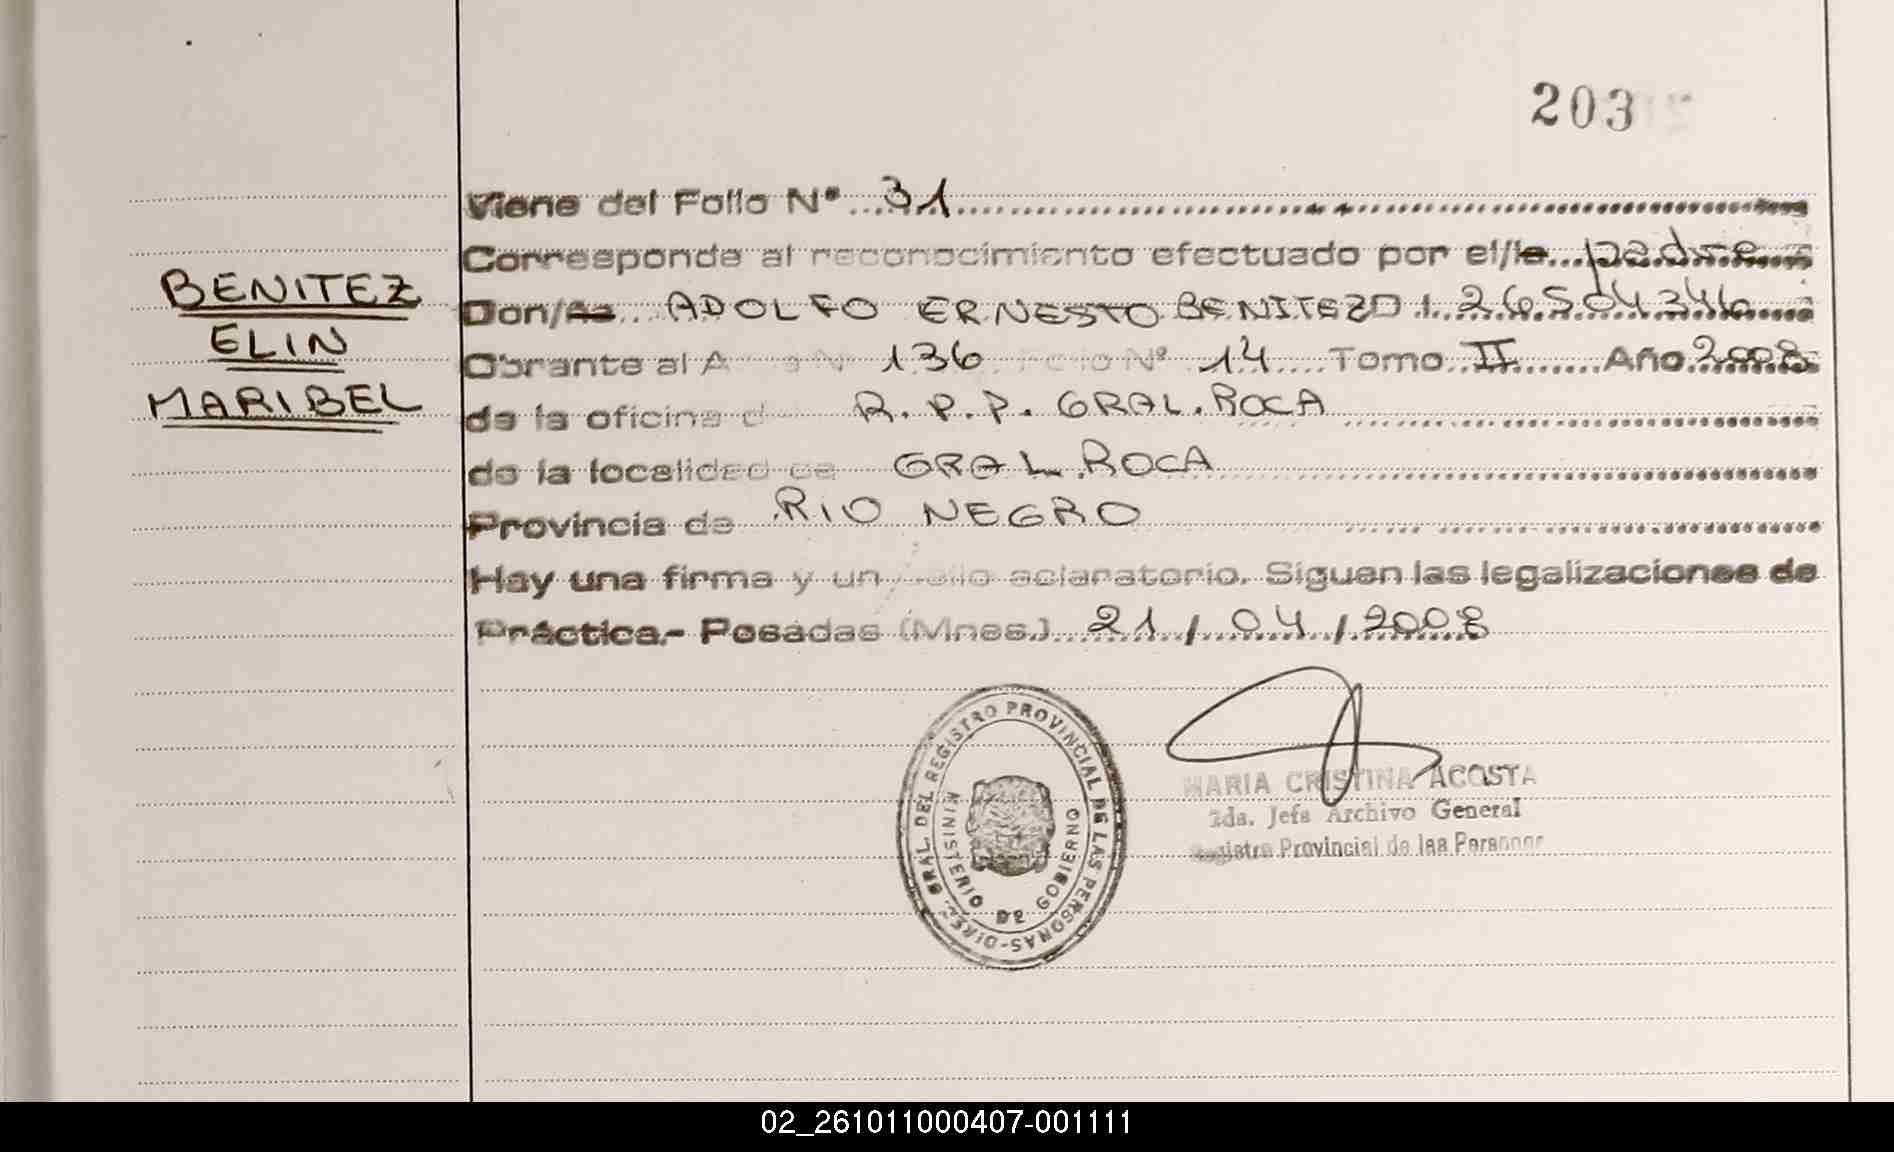 203
Viene del Folio Nº 31
Corresponde al reconocimiento efectuado por el/la padre
BENITEZ
ELIN
MARIBEL
Don/ña ADOLFO ERNESTO BENITEZ D.I. 26504346
Obrante al A Nº 136 Folio Nº 14 Tomo II Año 2008
de la oficina d R.P.P. GRAL. ROCA
de la localidad de GRAL. ROCA
Provincia de RIO NEGRO
Hay una firma y un sello aclaratorio. Siguen las legalizaciones de
Práctica.- Posadas (Mnes.) 21/04/2008
DIREC. GRAL. DEL REGISTRO PROVINCIAL DE LAS PERSONAS
MINISTERIO DE GOBIERNO
MARIA CRISTINA ACOSTA
2da. Jefa Archivo General
Registro Provincial de las Personas
02_261011000407-001111